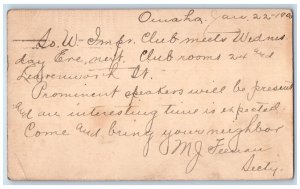 Omaha. Jan. 22-190
So. W- Impr. Club meets Wednes
day Eve, next. Club rooms 24 and
Leavenworth St.
Prominent speakers will be present
and an interesting time is expected.
Come and bring your neighbor
M J Feenan
Secty.